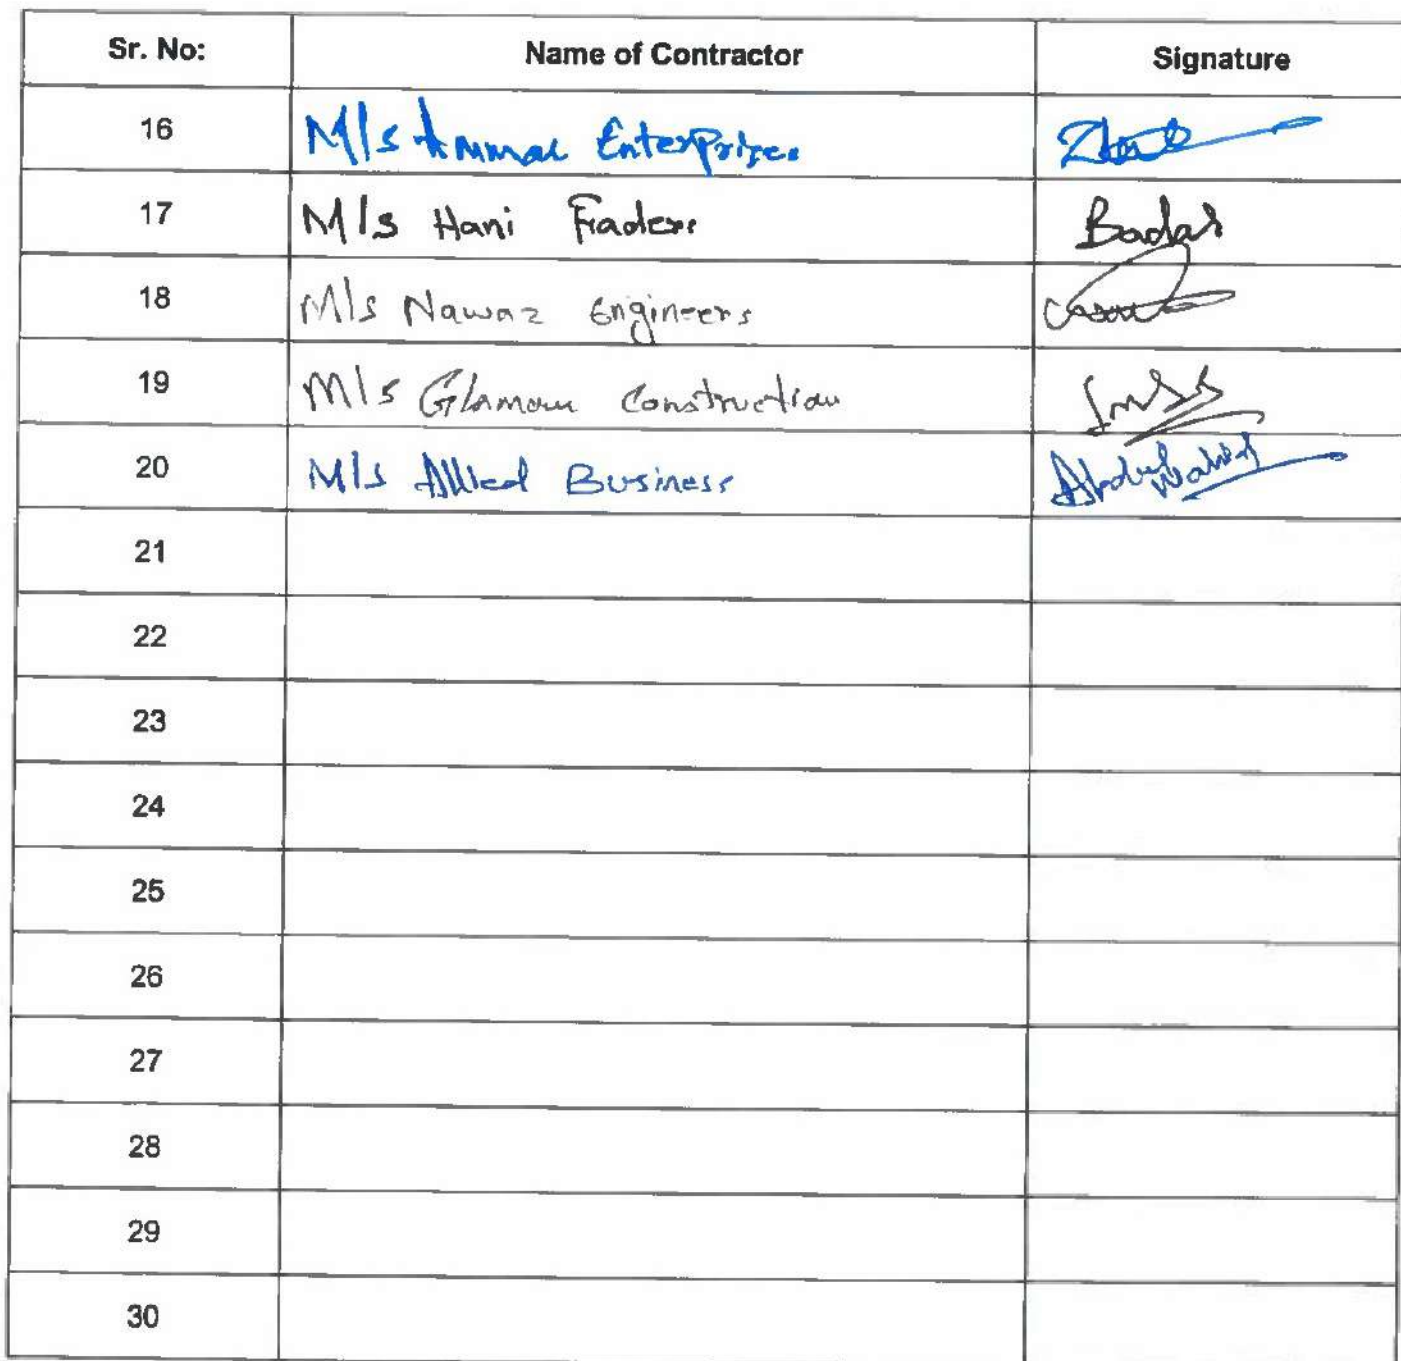 Sr. No: Name of Contractor Signature
16 M/s Ammar Enterprises
17 M/s Hani Traders Badar
18 M/s Nawaz Engineers
19 M/s Glamour Construction
20 M/s Allied Business Abdul Wahid
21
22
23
24
25
26
27
28
29
30